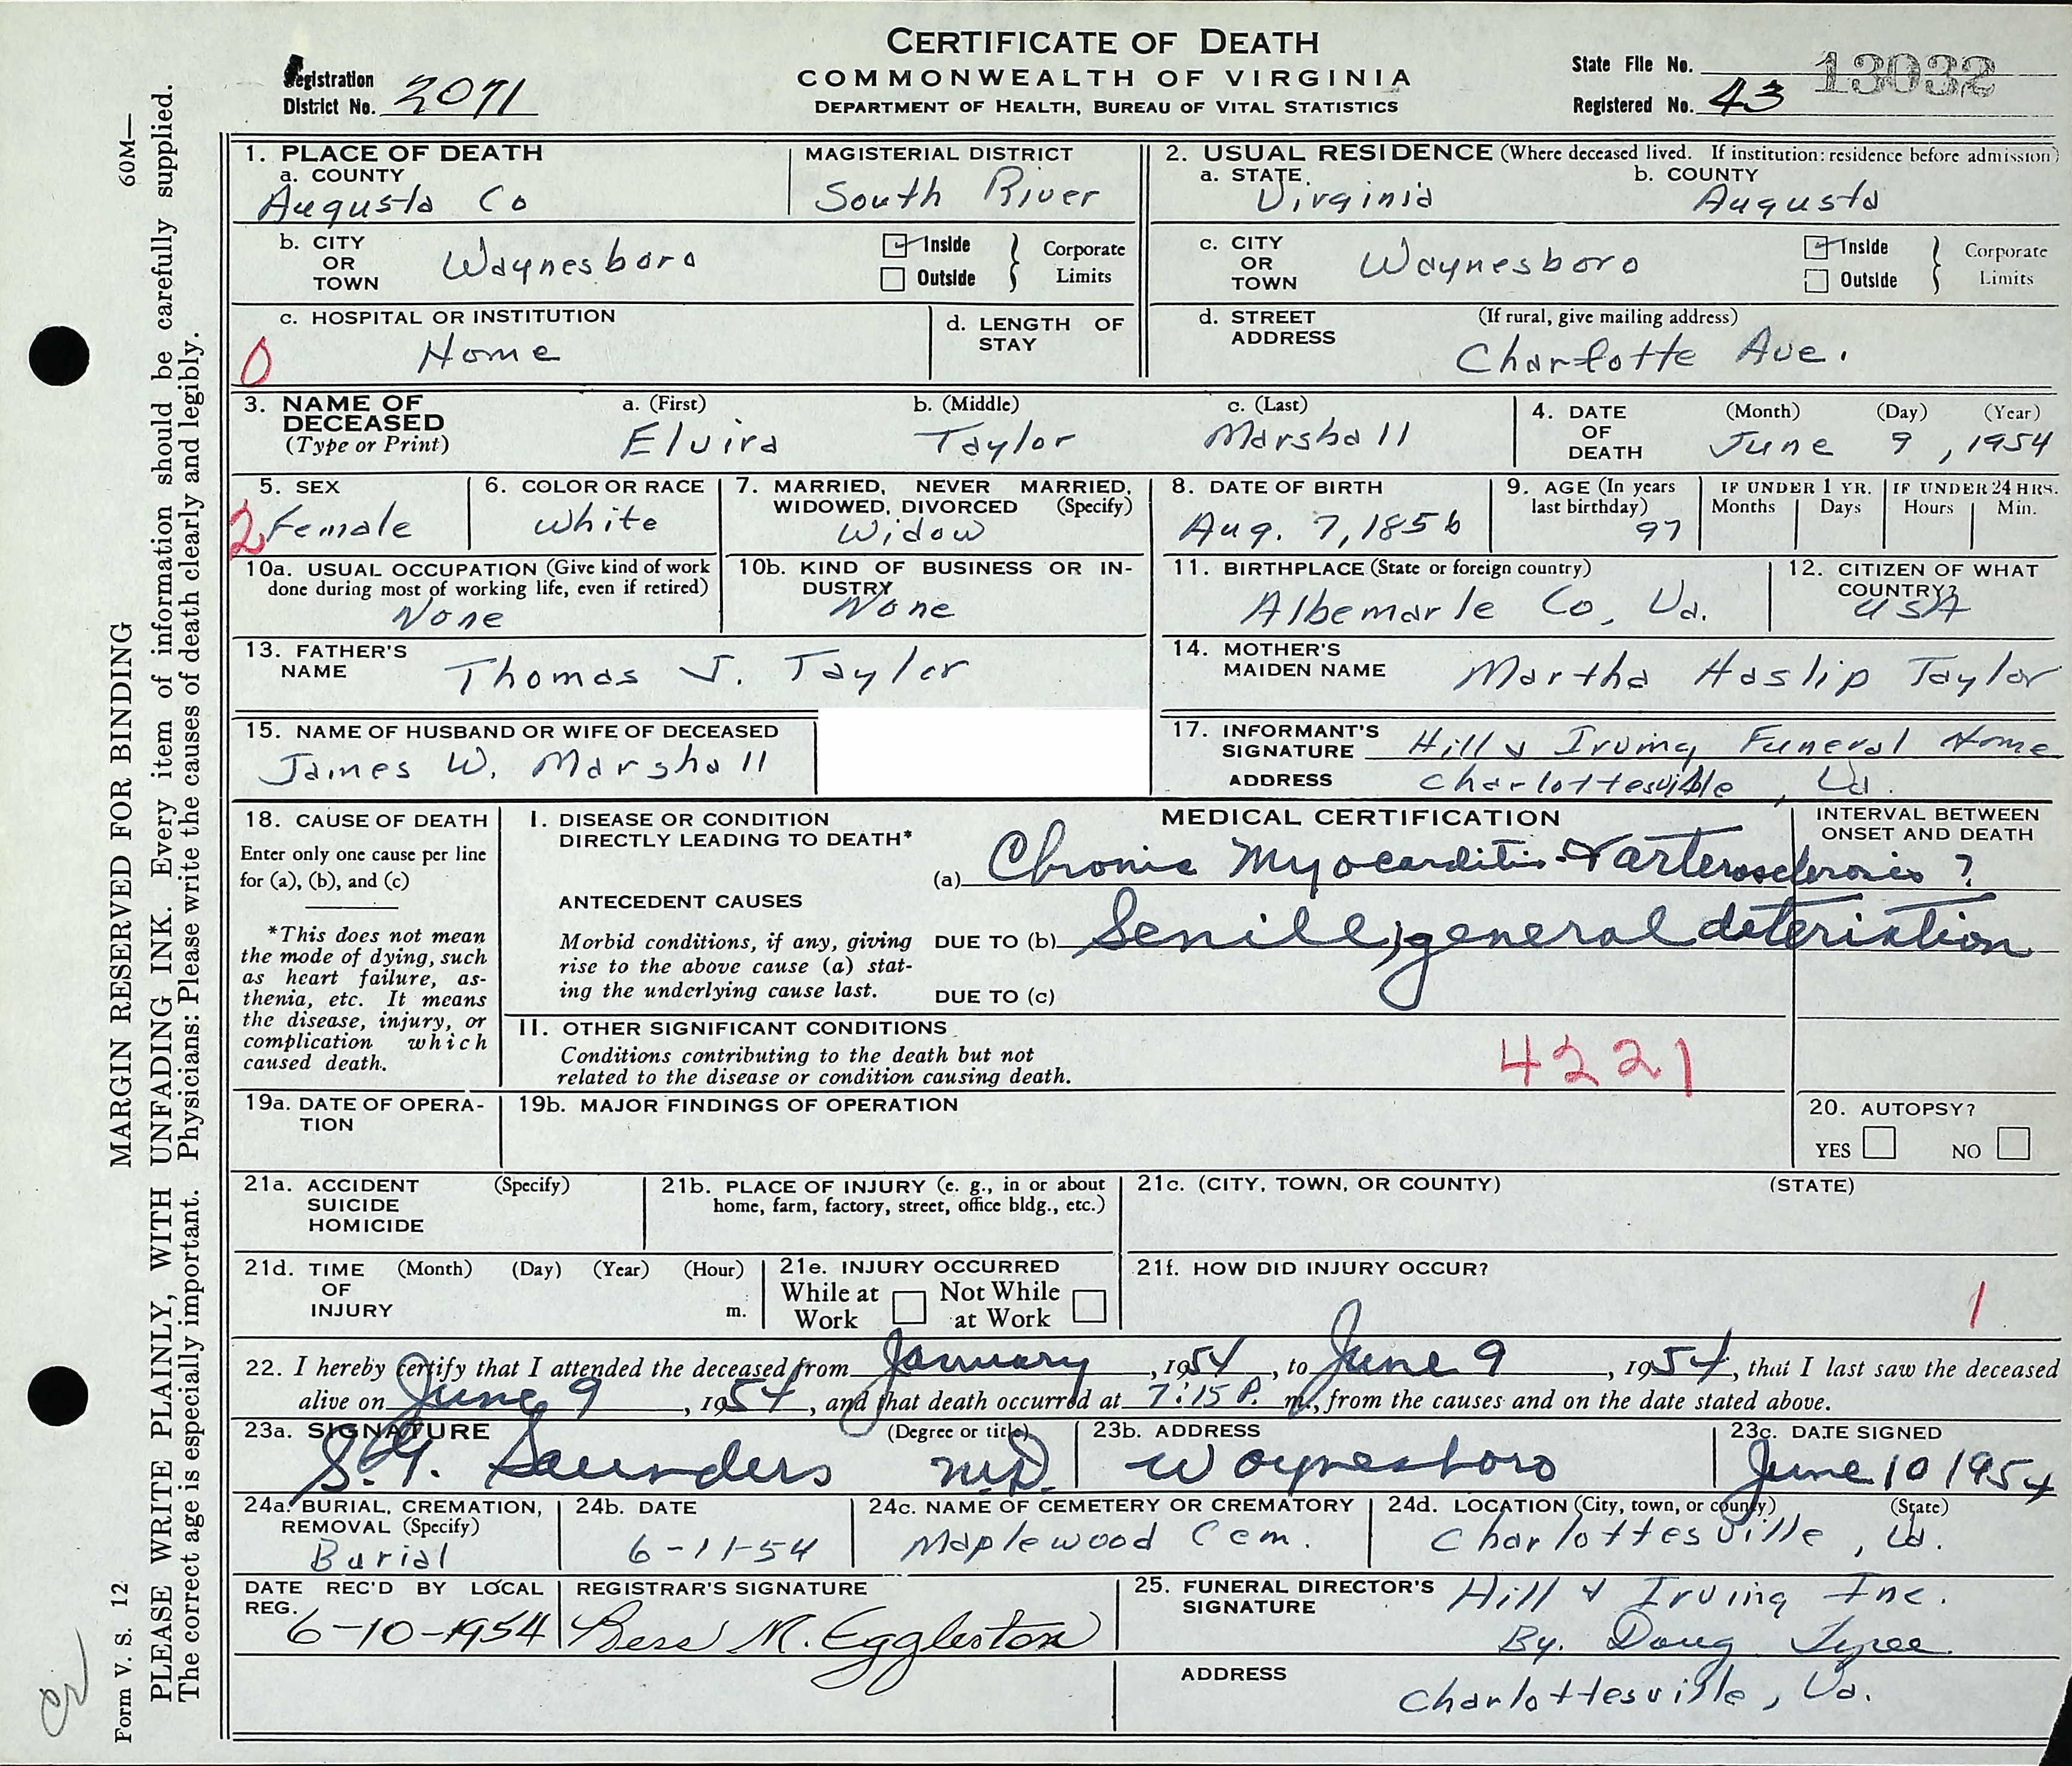 CERTIFICATE OF DEATH
COMMONWEALTH OF VIRGINIA
DEPARTMENT OF HEALTH, BUREAU OF VITAL STATISTICS
Registration District No. 2071
State File No. 13032
Registered No. 43
1. PLACE OF DEATH
a. COUNTY Augusta Co
MAGISTERIAL DISTRICT South River
b. CITY OR TOWN Waynesboro
Inside Outside } Corporate Limits
c. HOSPITAL OR INSTITUTION Home
0
d. LENGTH OF STAY
2. USUAL RESIDENCE (Where deceased lived. If institution: residence before admission)
a. STATE Virginia
b. COUNTY Augusta
c. CITY OR TOWN Waynesboro
Inside Outside } Corporate Limits
d. STREET ADDRESS (If rural, give mailing address) Charlotte Ave.
3. NAME OF DECEASED (Type or Print)
a. (First) Elvira
b. (Middle) Taylor
c. (Last) Marshall
4. DATE OF DEATH (Month) (Day) (Year) June 9, 1954
5. SEX Female
2
6. COLOR OR RACE White
7. MARRIED, NEVER MARRIED, WIDOWED, DIVORCED (Specify) Widow
8. DATE OF BIRTH Aug. 7, 1856
9. AGE (In years last birthday) 97
IF UNDER 1 YR. Months Days
IF UNDER 24 HRS. Hours Min.
10a. USUAL OCCUPATION (Give kind of work done during most of working life, even if retired) None
10b. KIND OF BUSINESS OR INDUSTRY None
11. BIRTHPLACE (State or foreign country) Albemarle Co, Va.
12. CITIZEN OF WHAT COUNTRY? USA
13. FATHER'S NAME Thomas J. Taylor
14. MOTHER'S MAIDEN NAME Martha Haslip Taylor
15. NAME OF HUSBAND OR WIFE OF DECEASED James W. Marshall
17. INFORMANT'S SIGNATURE Hill & Irving Funeral Home
ADDRESS Charlottesville, Va.
18. CAUSE OF DEATH
Enter only one cause per line for (a), (b), and (c)
*This does not mean the mode of dying, such as heart failure, asthenia, etc. It means the disease, injury, or complication which caused death.
MEDICAL CERTIFICATION
INTERVAL BETWEEN ONSET AND DEATH
I. DISEASE OR CONDITION DIRECTLY LEADING TO DEATH*
(a) Chronic Myocarditis & arterosclerosis ?
ANTECEDENT CAUSES
Morbid conditions, if any, giving rise to the above cause (a) stating the underlying cause last.
DUE TO (b) Senile; general deteriation
DUE TO (c)
II. OTHER SIGNIFICANT CONDITIONS
Conditions contributing to the death but not related to the disease or condition causing death.
4221
19a. DATE OF OPERATION
19b. MAJOR FINDINGS OF OPERATION
20. AUTOPSY?
YES NO
21a. ACCIDENT SUICIDE HOMICIDE (Specify)
21b. PLACE OF INJURY (e. g., in or about home, farm, factory, street, office bldg., etc.)
21c. (CITY, TOWN, OR COUNTY) (STATE)
21d. TIME OF INJURY (Month) (Day) (Year) (Hour) m.
21e. INJURY OCCURRED
While at Work Not While at Work
21f. HOW DID INJURY OCCUR?
1
22. I hereby certify that I attended the deceased from January, 1954, to June 9, 1954, that I last saw the deceased
alive on June 9, 1954, and that death occurred at 7:15 P. m., from the causes and on the date stated above.
23a. SIGNATURE (Degree or title) Saunders M.D.
23b. ADDRESS Waynesboro
23c. DATE SIGNED June 10 1954
24a. BURIAL, CREMATION, REMOVAL (Specify) Burial
24b. DATE 6-11-54
24c. NAME OF CEMETERY OR CREMATORY Maplewood Cem.
24d. LOCATION (City, town, or county) (State) Charlottesville, Va.
DATE REC'D BY LOCAL REG. 6-10-1954
REGISTRAR'S SIGNATURE Bess M. Eggleston
25. FUNERAL DIRECTOR'S SIGNATURE Hill & Irving Inc.
By. Doug Tyree
ADDRESS Charlottesville, Va.
60M—
MARGIN RESERVED FOR BINDING
PLEASE WRITE PLAINLY, WITH UNFADING INK. Every item of information should be carefully supplied.
The correct age is especially important. Physicians: Please write the causes of death clearly and legibly.
Form V. S. 12